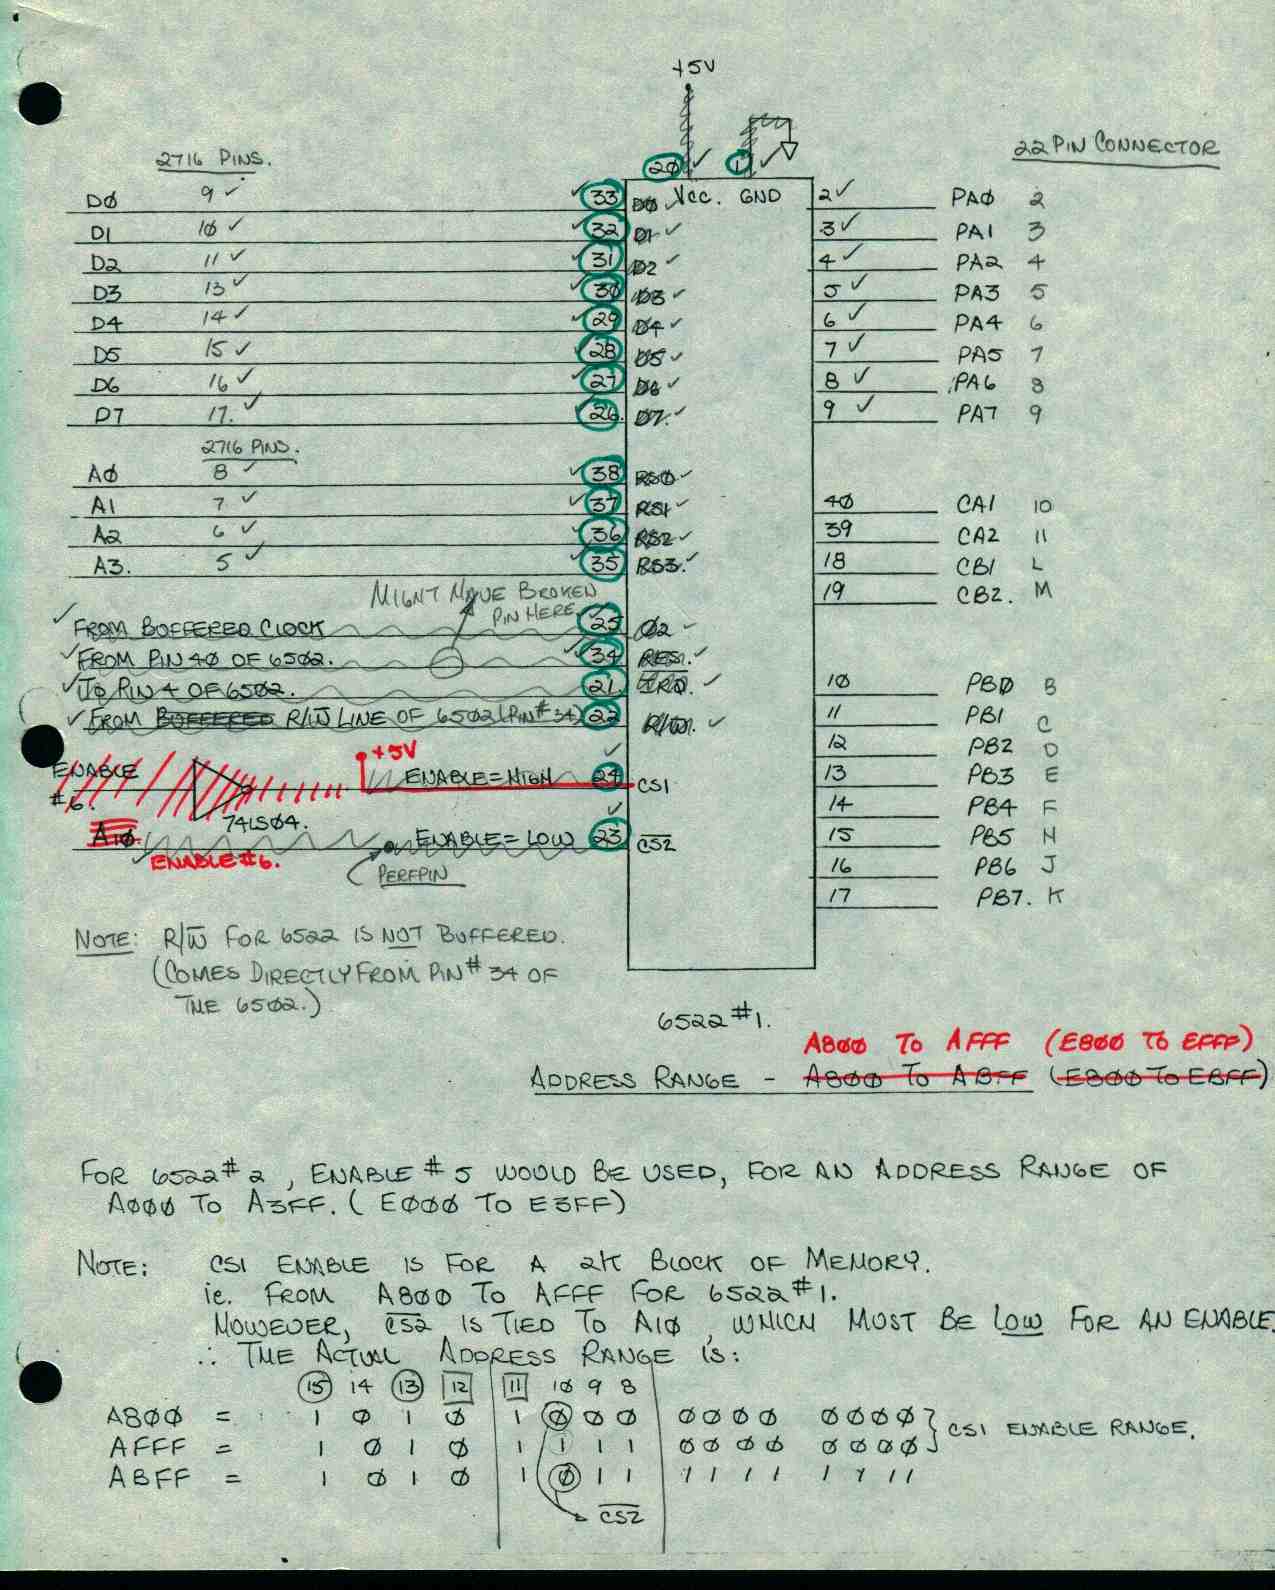 +5V
2716 PINS.
22 PIN CONNECTOR
20 1
Vcc. GND
D0 9 33 D0 2 PA0 2
D1 10 32 D1 3 PA1 3
D2 11 31 D2 4 PA2 4
D3 13 30 D3 5 PA3 5
D4 14 29 D4 6 PA4 6
D5 15 28 D5 7 PA5 7
D6 16 27 D6 8 PA6 8
D7 17. 26. D7. 9 PA7 9
2716 PINS.
A0 8 38 RS0
A1 7 37 RS1 40 CA1 10
A2 6 36 RS2 39 CA2 11
A3. 5 35 RS3. 18 CB1 L
19 CB2. M
MIGHT HAVE BROKEN
PIN HERE.
FROM BUFFERED CLOCK 25 Ø2
FROM PIN 40 OF 6502. 34 RES.
TO PIN 4 OF 6502. 21. IRQ. 10 PB0 B
FROM BUFFERED R/W LINE OF 6502 (PIN #34) 22 R/W. 11 PB1 C
12 PB2 D
+5V
ENABLE #6. ENABLE=HIGH 24 CS1 13 PB3 E
14 PB4 F
74LS04.
A10. ENABLE=LOW 23 CS2 15 PB5 H
ENABLE #6.
PERFPIN
16 PB6 J
17 PB7. K
NOTE: R/W FOR 6522 IS NOT BUFFERED.
(COMES DIRECTLY FROM PIN # 34 OF
THE 6502.)
6522 #1.
A800 TO AFFF (E800 TO EFFF)
ADDRESS RANGE - A800 TO ABFF (E800 TO EBFF)
FOR 6522 #2, ENABLE #5 WOULD BE USED, FOR AN ADDRESS RANGE OF
A000 TO A3FF. (E000 TO E3FF)
NOTE: CS1 ENABLE IS FOR A 2K BLOCK OF MEMORY.
ie. FROM A800 TO AFFF FOR 6522 #1.
HOWEVER, CS2 IS TIED TO A10, WHICH MUST BE LOW FOR AN ENABLE.
∴ THE ACTUAL ADDRESS RANGE IS:
15 14 13 12 11 10 9 8
A800 = 1 0 1 0 1 0 0 0 0000 0000 } CS1 ENABLE RANGE.
AFFF = 1 0 1 0 1 1 1 1 0000 0000
ABFF = 1 0 1 0 1 0 1 1 1111 1111
CS2